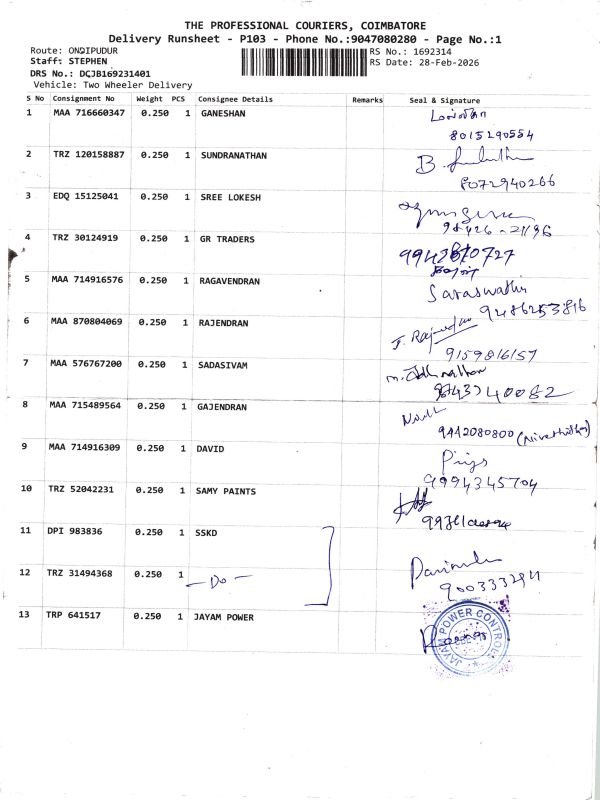 THE PROFESSIONAL COURIERS, COIMBATORE
Delivery Runsheet - P103 - Phone No.:9047080280 - Page No.:1
Route: ONDIPUDUR RS No.: 1692314
Staff: STEPHEN RS Date: 28-Feb-2026
DRS No.: DCJB169231401
Vehicle: Two Wheeler Delivery
S No Consignment No Weight PCS Consignee Details Remarks Seal & Signature
1 MAA 716660347 0.250 1 GANESHAN
8015290554
2 TRZ 120158887 0.250 1 SUNDRANATHAN B.
8072940266
3 EDQ 15125041 0.250 1 SREE LOKESH
98426-21196
4 TRZ 30124919 0.250 1 GR TRADERS
5 MAA 714916576 0.250 1 RAGAVENDRAN Saraswathi
9486253816
6 MAA 870804069 0.250 1 RAJENDRAN J. Rajendran
9159816157
7 MAA 576767200 0.250 1 SADASIVAM
8 MAA 715489564 0.250 1 GAJENDRAN
9442080800
9 MAA 714916309 0.250 1 DAVID Priya
9994345704
10 TRZ 52042231 0.250 1 SAMY PAINTS
11 DPI 983836 0.250 1 SSKD
12 TRZ 31494368 0.250 1 - Do -
13 TRP 641517 0.250 1 JAYAM POWER
JAYAM POWER CONTROLS